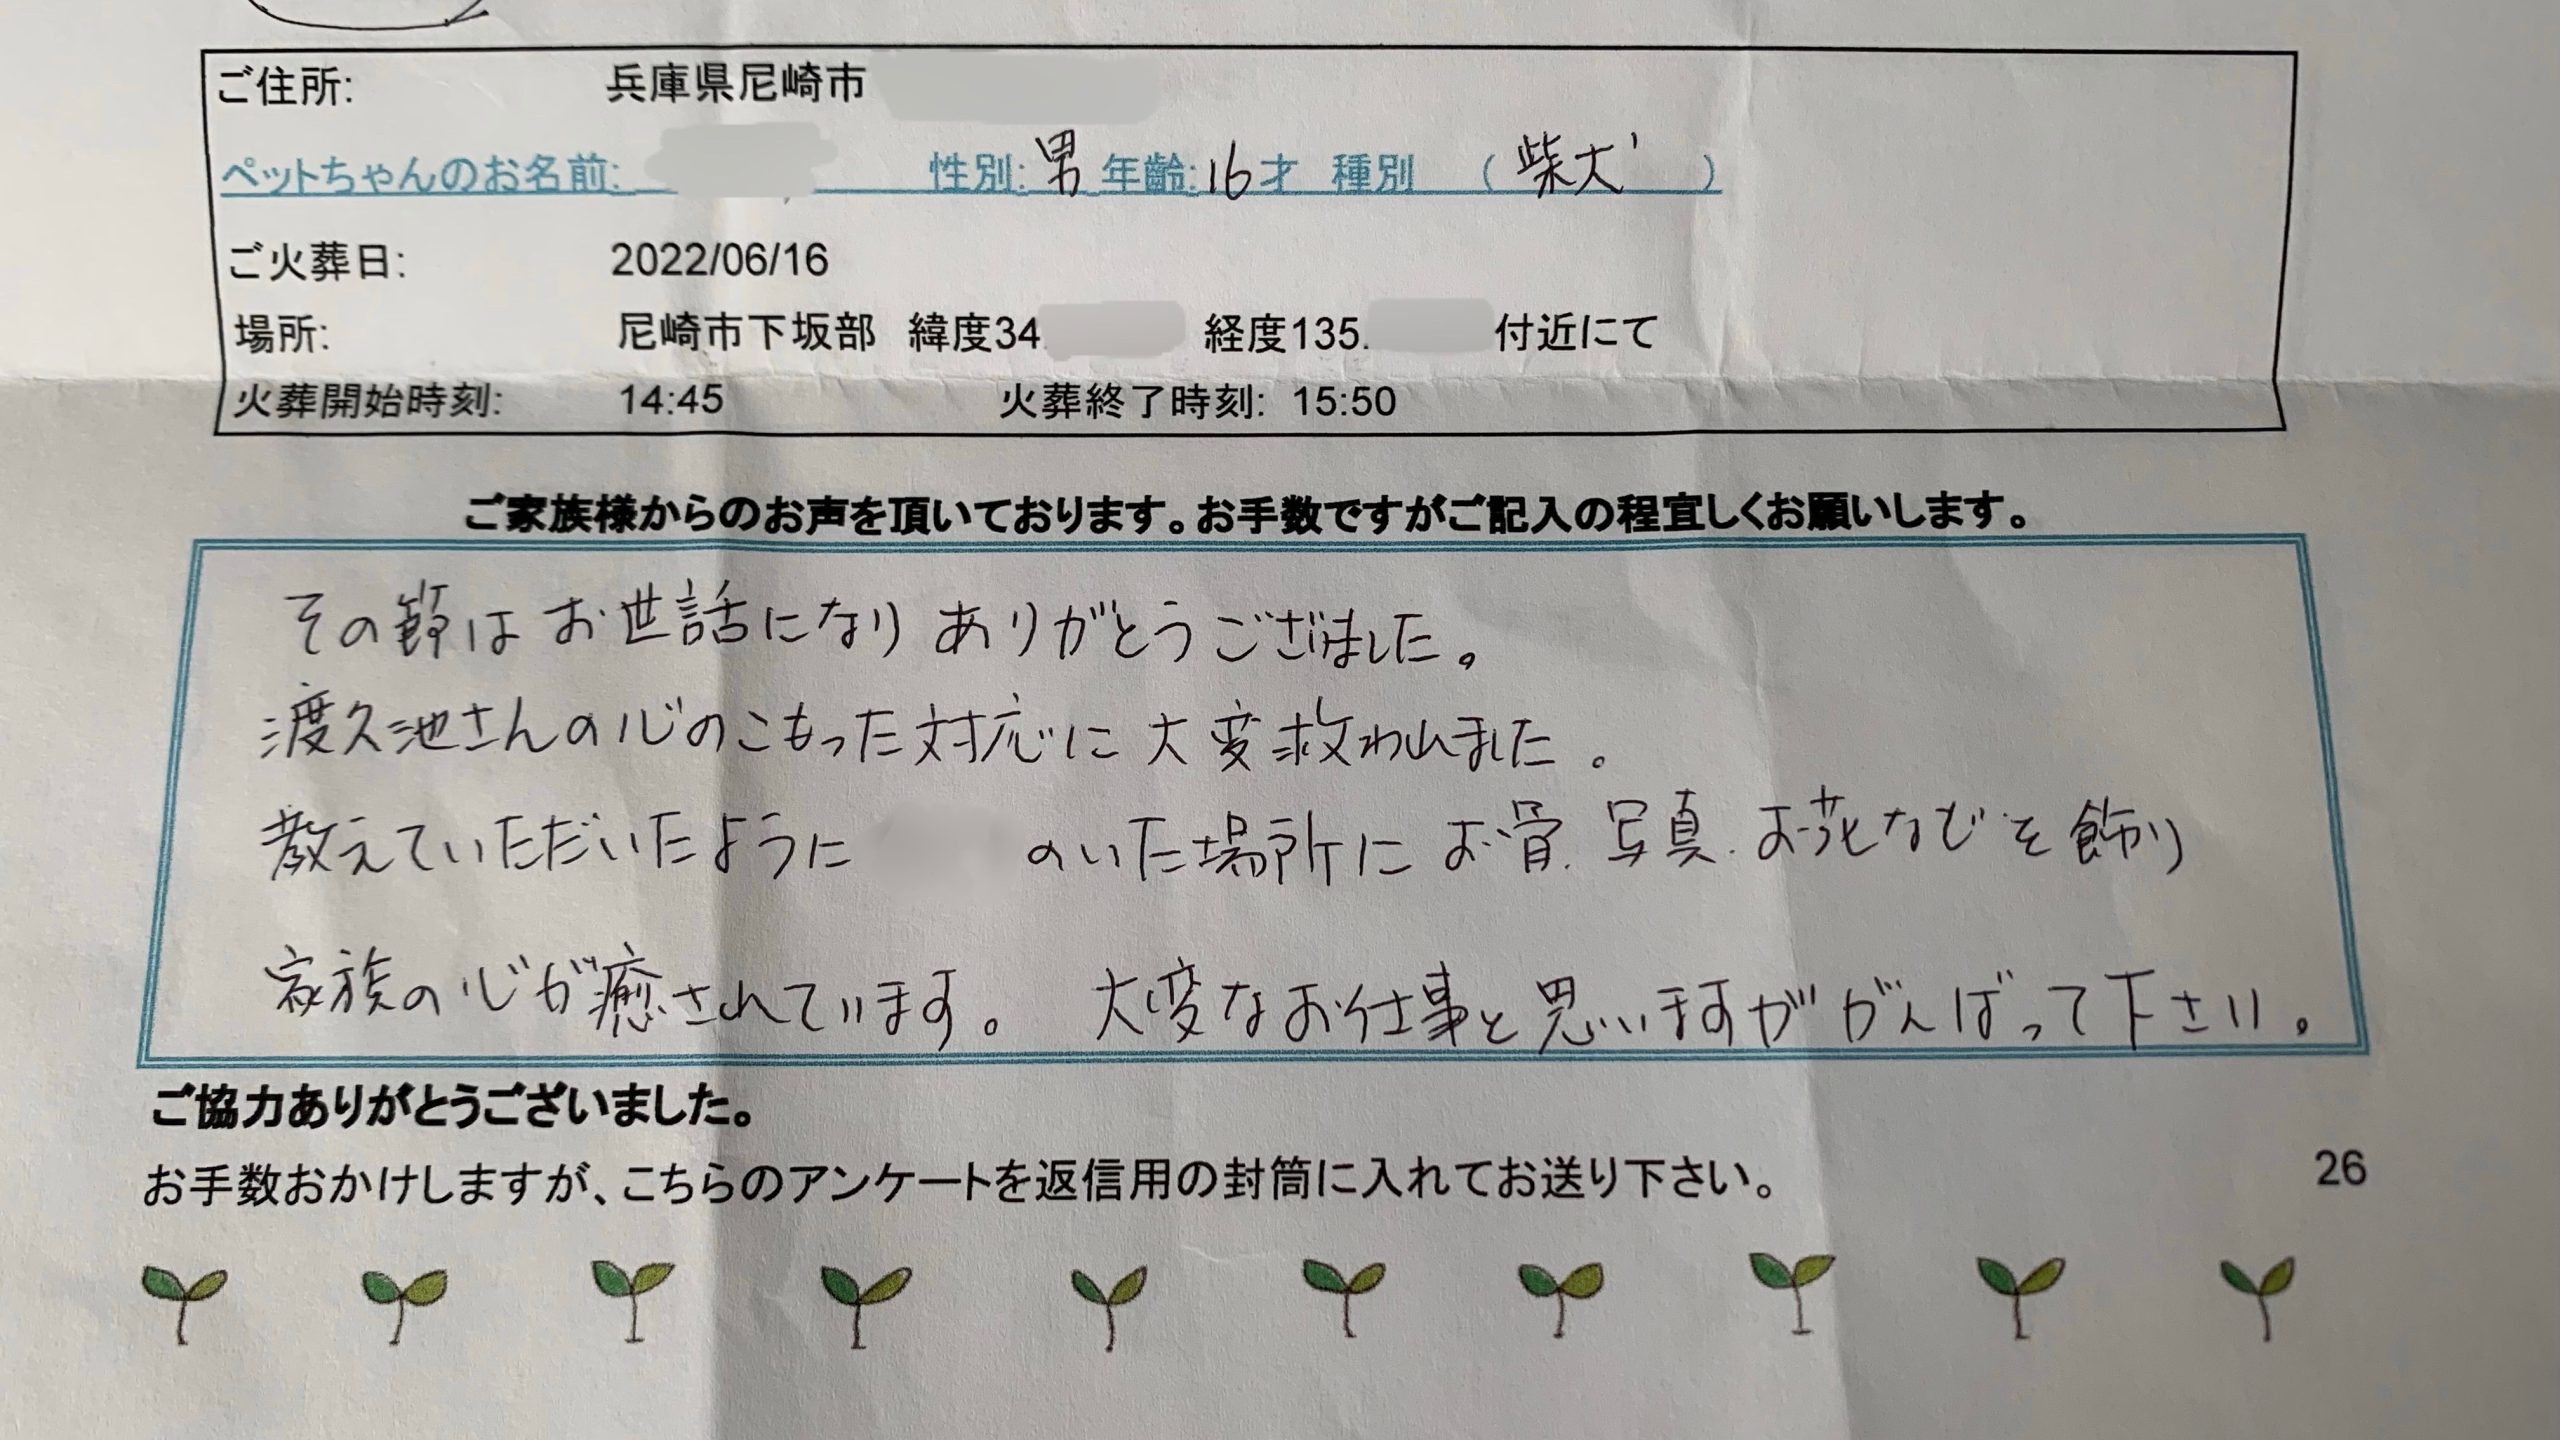 ご住所: 兵庫県尼崎市
ペットちゃんのお名前: 性別: 男 年齢: 16才 種別 ( 柴犬 )
ご火葬日: 2022/06/16
場所: 尼崎市下坂部 緯度34. 経度135. 付近にて
火葬開始時刻: 14:45 火葬終了時刻: 15:50
ご家族様からのお声を頂いております。お手数ですがご記入の程宜しくお願いします。
その節はお世話になりありがとうございました。
渡久池さんの心のこもった対応に大変救われました。
教えていただいたように のいた場所にお骨、写真、お花などを飾り
家族の心が癒されています。 大変なお仕事と思いますががんばって下さい。
ご協力ありがとうございました。
お手数おかけしますが、こちらのアンケートを返信用の封筒に入れてお送り下さい。 26